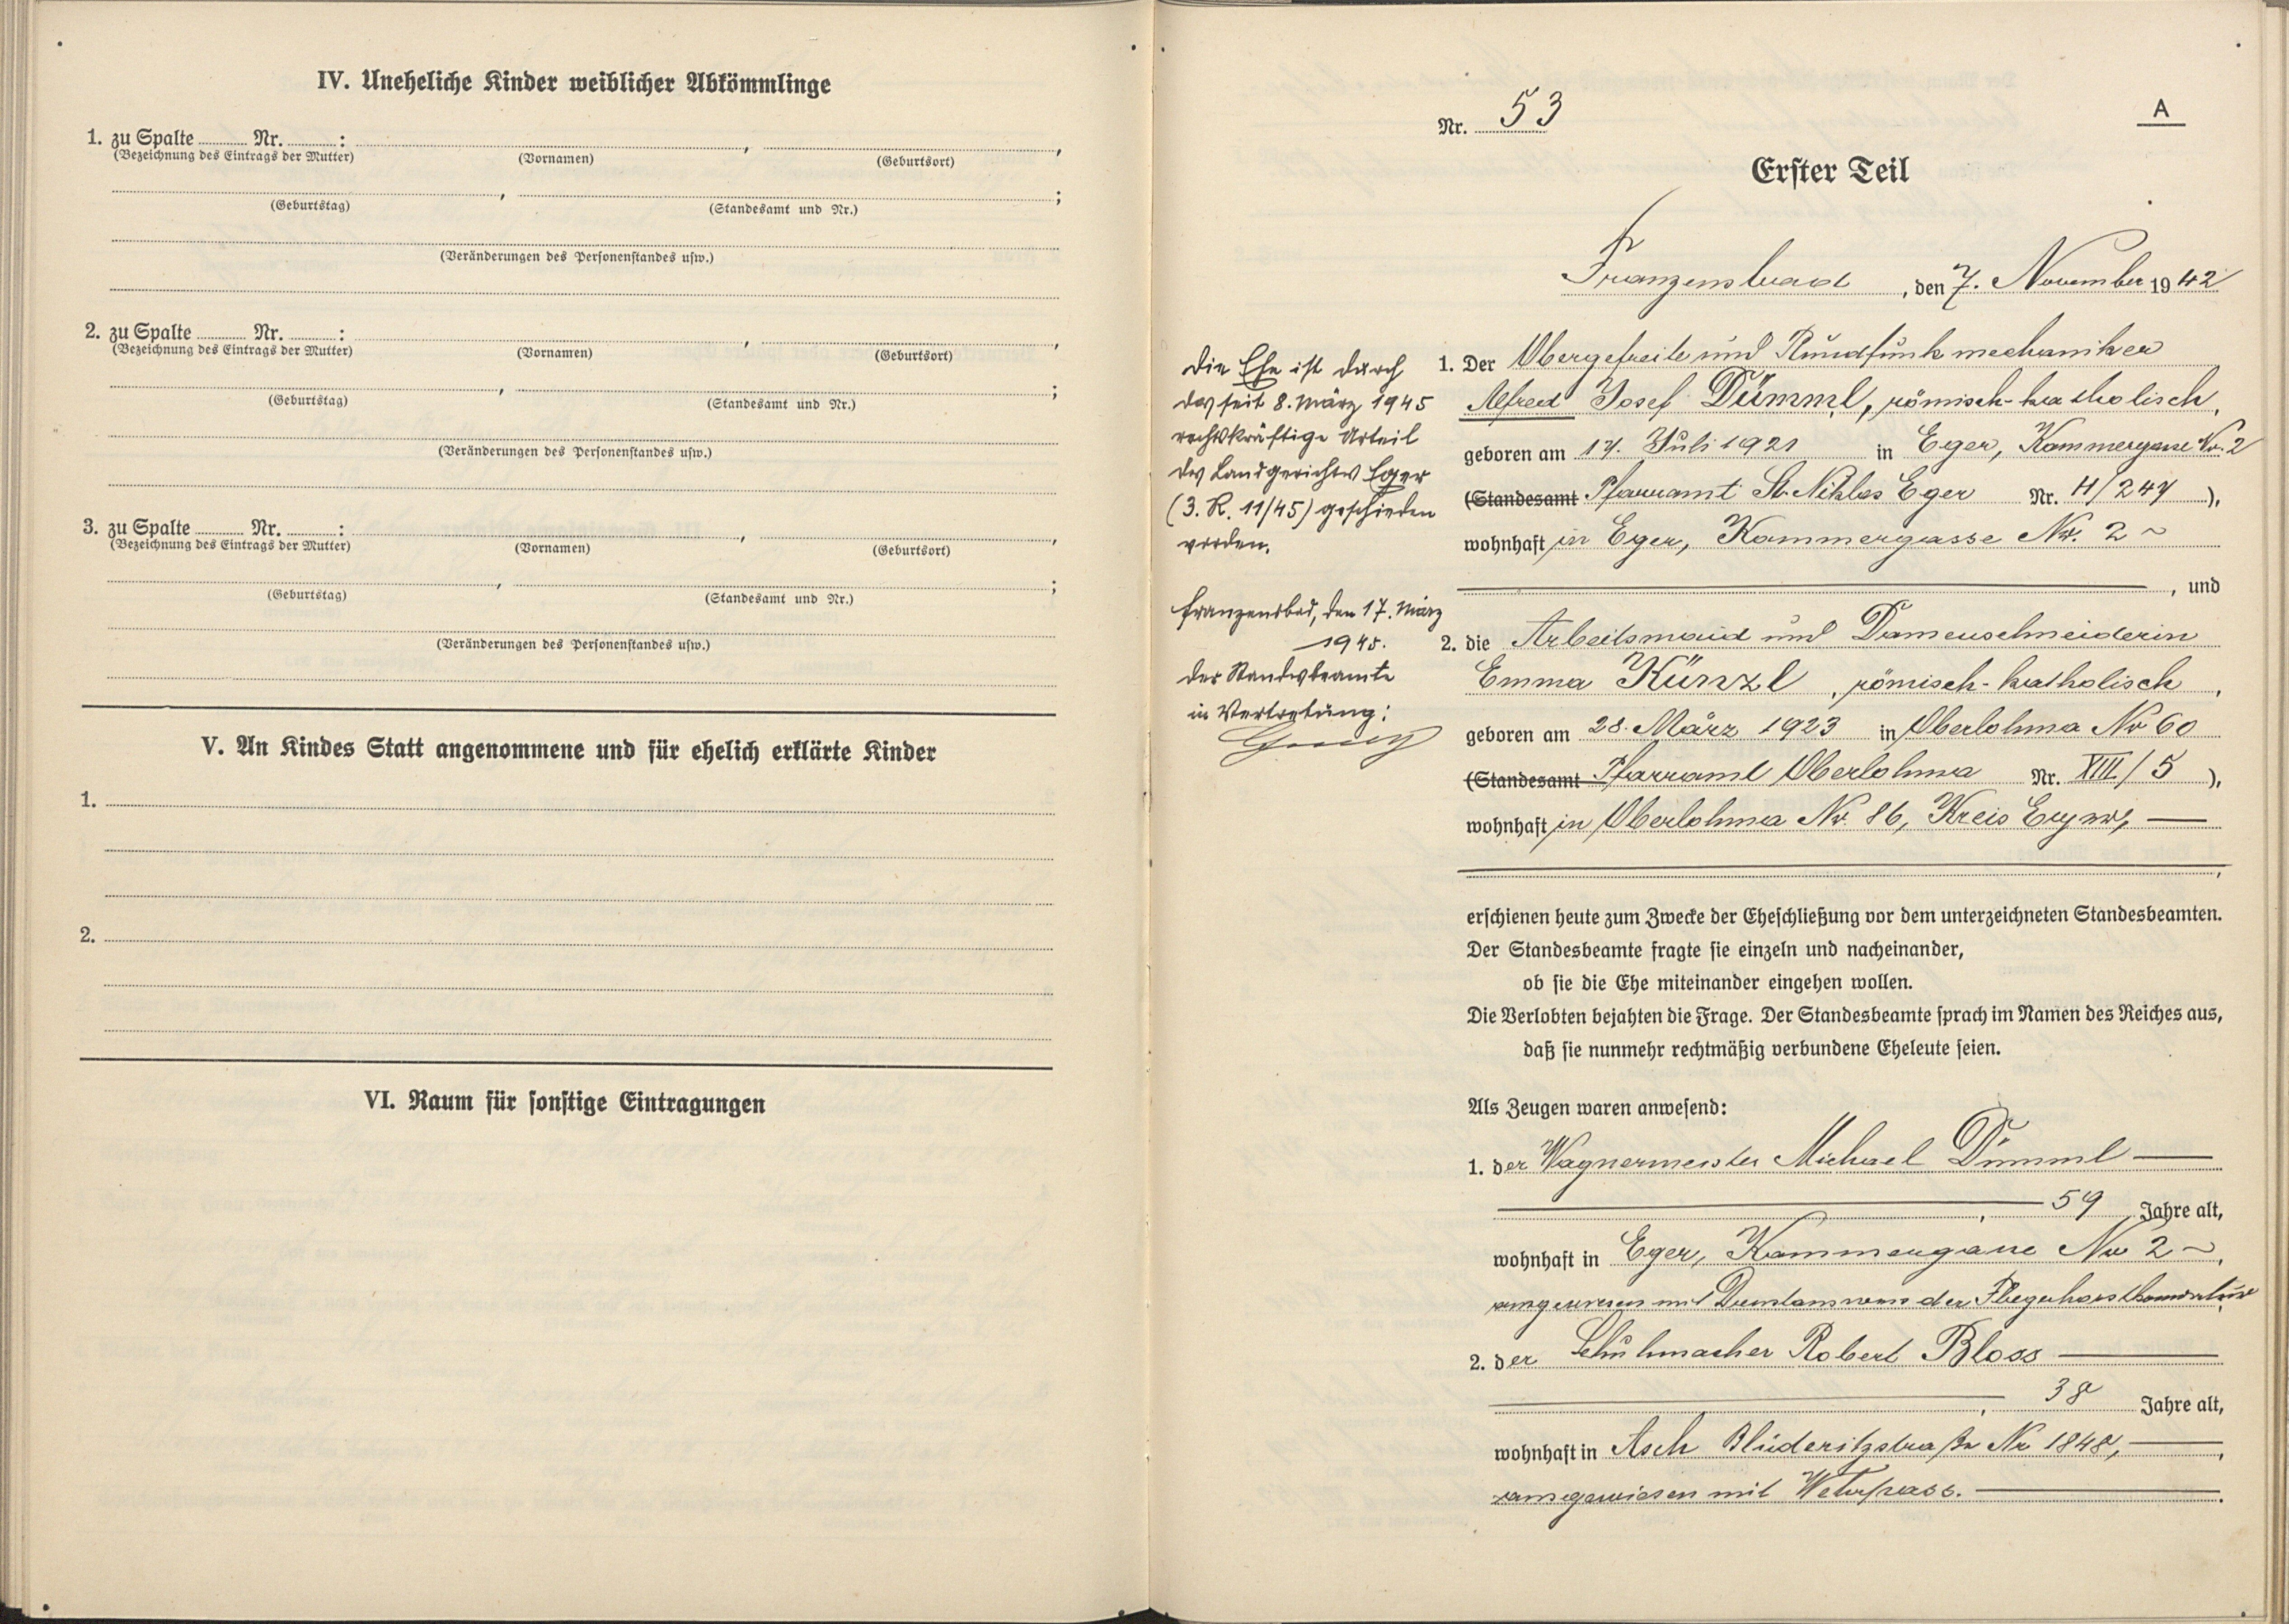 IV. Uneheliche Kinder weiblicher Abkömmlinge
1. zu Spalte ........ Nr. ........ : , ,
(Bezeichnung des Eintrags der Mutter) (Vornamen) (Geburtsort)
, ;
(Geburtstag) (Standesamt und Nr.)
(Veränderungen des Personenstandes usw.)
2. zu Spalte ........ Nr. ........ : , ,
(Bezeichnung des Eintrags der Mutter) (Vornamen) (Geburtsort)
, ;
(Geburtstag) (Standesamt und Nr.)
(Veränderungen des Personenstandes usw.)
3. zu Spalte ........ Nr. ........ : , ,
(Bezeichnung des Eintrags der Mutter) (Vornamen) (Geburtsort)
, ;
(Geburtstag) (Standesamt und Nr.)
(Veränderungen des Personenstandes usw.)
V. An Kindes Statt angenommene und für ehelich erklärte Kinder
1.
2.
VI. Raum für sonstige Eintragungen
A
Nr. 53
Erster Teil
Franzensbad, den 7. November 1942
Die Ehe ist durch
das seit 8. März 1945
rechtskräftige Urteil
des Landgerichts Eger
(3. R. 11/45) geschieden
worden.
Franzensbad, den 17. März
1945.
Der Standesbeamte
in Vertretung:
1. Der Obergefreite und Rundfunkmechaniker
Alfred Josef Dümml, römisch-katholisch,
geboren am 17. Juli 1921 in Eger, Kammergasse Nr. 2
(Standesamt Pfarramt St. Niklas Eger Nr. 4/247),
wohnhaft in Eger, Kammergasse Nr. 2
, und
2. die Arbeitsmaid und Damenschneiderin
Emma Künzl, römisch-katholisch,
geboren am 28. März 1923 in Oberlohma Nr 60
(Standesamt Pfarramt Oberlohma Nr. XIII/5),
wohnhaft in Oberlohma Nr. 86, Kreis Eger,
erschienen heute zum Zwecke der Eheschließung vor dem unterzeichneten Standesbeamten.
Der Standesbeamte fragte sie einzeln und nacheinander,
ob sie die Ehe miteinander eingehen wollen.
Die Verlobten bejahten die Frage. Der Standesbeamte sprach im Namen des Reiches aus,
daß sie nunmehr rechtmäßig verbundene Eheleute seien.
Als Zeugen waren anwesend:
1. der Wagnermeister Michael Dümml
, 59 Jahre alt,
wohnhaft in Eger, Kammergasse Nr 2,
ausgewiesen mit Dienstausweis der Fliegerhorstkomdantur
2. der Schuhmacher Robert Bloss
, 38 Jahre alt,
wohnhaft in Asch Nr 1848,
ausgewiesen mit Wehrpass.